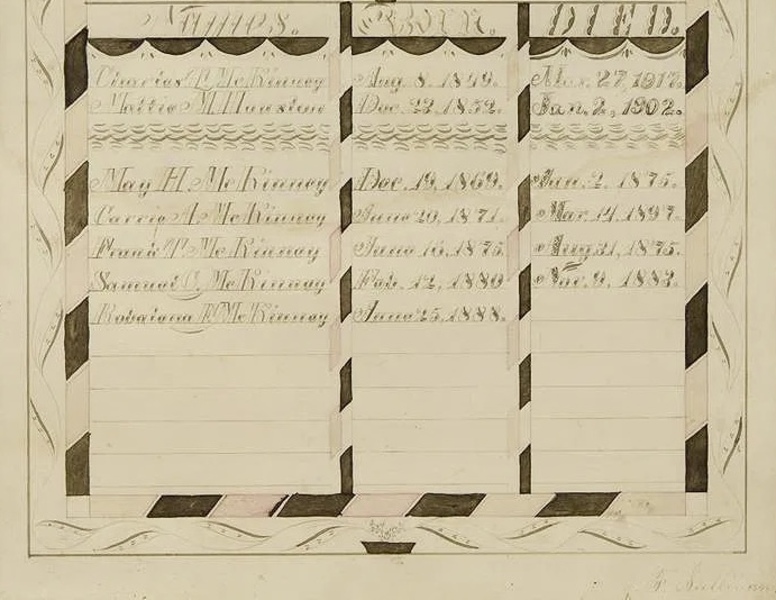 Names. Born. DIED.
Charles E. McKinney Aug. 8. 1849. Mar. 27, 1917.
Mattie M. Houston Dec. 22. 1852. Jan. 2., 1902.
May H. McKinney Dec. 19, 1869. Jan. 2. 1875.
Carrie A. McKinney June 20, 1871. Mar. 14, 1897.
Frank T. McKinney June 16, 1875 Aug. 31, 1875.
Samuel C. McKinney Feb. 12, 1880 Nov. 9. 1882.
McKinney June 25, 1888.